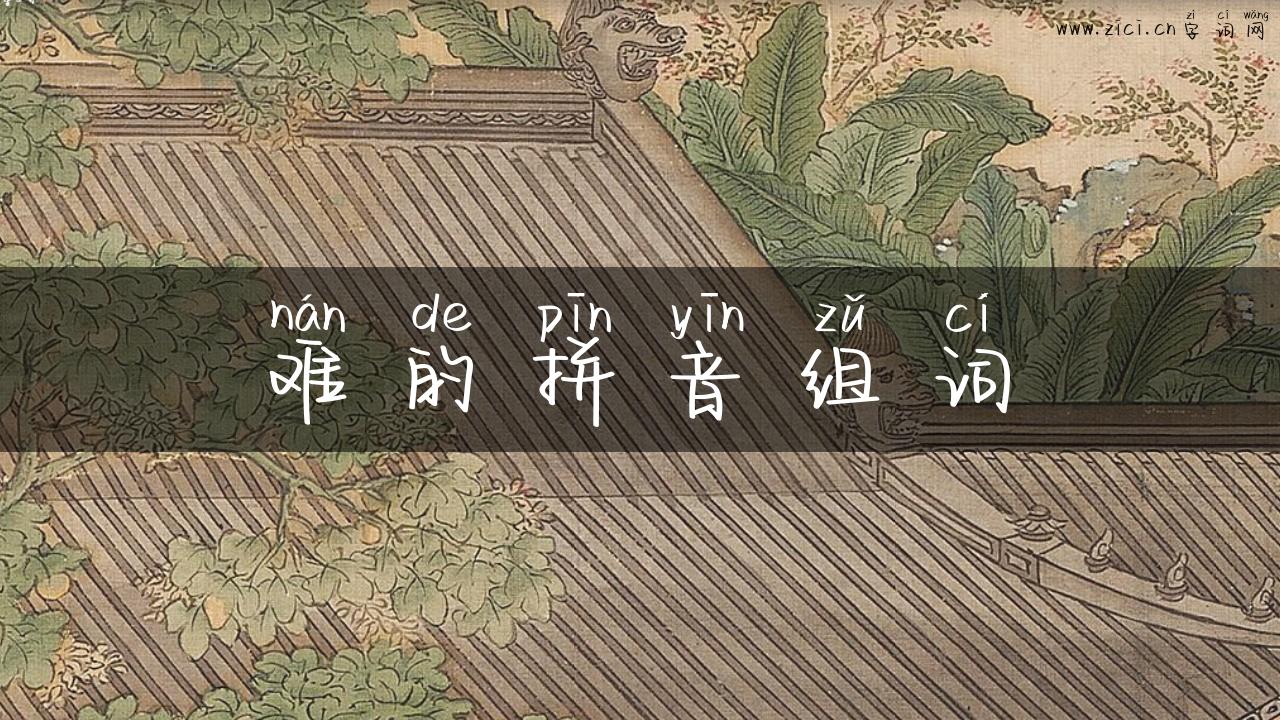 zì cí wǎng
www.zici.cn 字词网
nán de pīn yīn zǔ cí
难的拼音组词